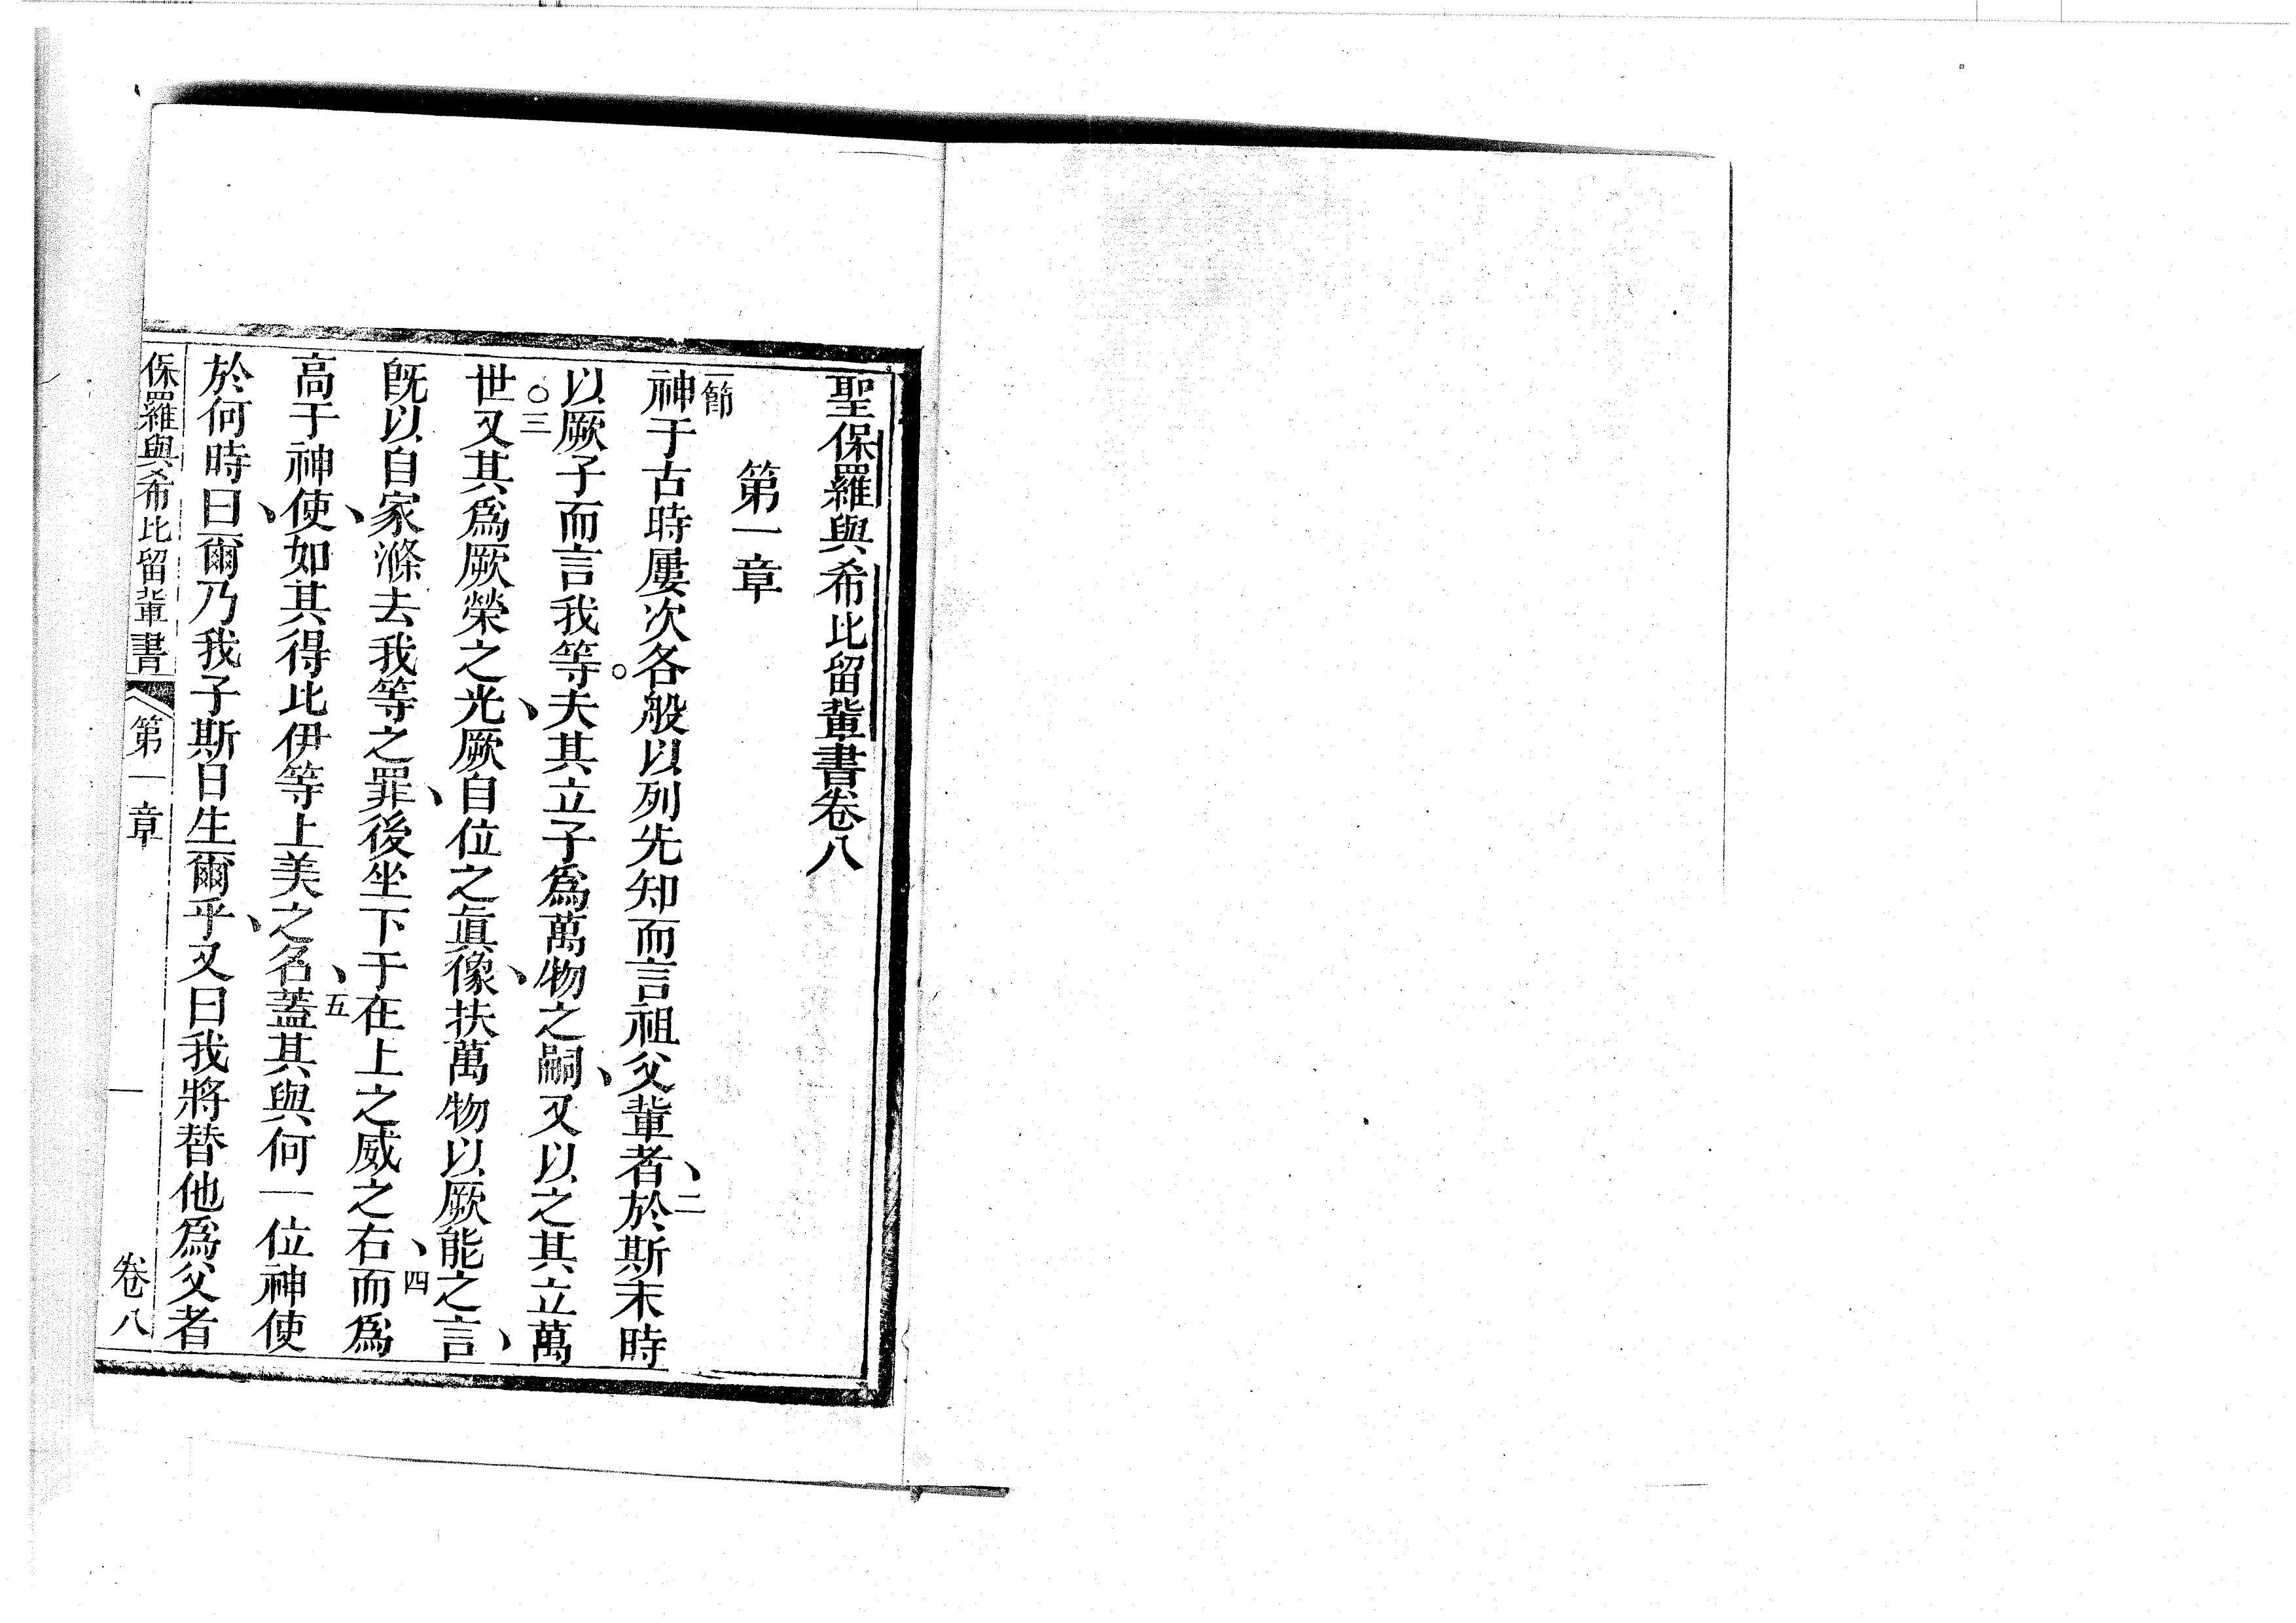 聖保羅與希比留輩書卷八
第一章
一節
神于古時屢次各般以列先知而言祖父輩者、二於斯末時
以厥子而言我等。夫其立子爲萬物之嗣、又以之其立萬
世○三又其爲厥榮之光、厥自位之眞像、扶萬物以厥能之言、
旣以自家滌去我等之罪、後坐下于在上之威之右、四而爲
高于神使、如其得比伊等上美之名、五蓋其與何一位神使
於何時曰、爾乃我子斯日生爾乎、又曰我將替他爲父者
保羅與希比留輩書 第一章 一 卷八